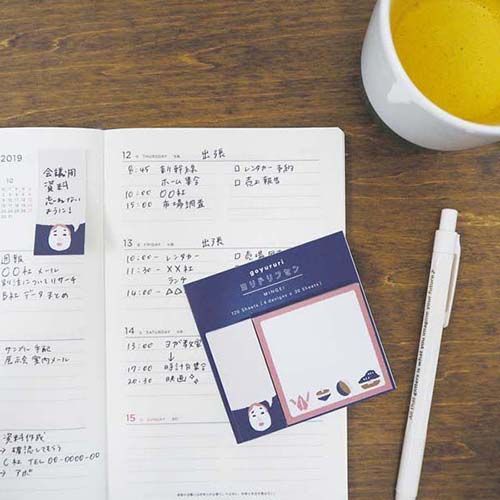 2019
10
会議用
資料
忘れない
ように!
週報
〇〇社 メール
B社 データまとめ
サンプル手配
展示会 案内メール
資料作成
→ 確認してもらう
C社 TEL 00-0000-00
→ アポ
12 THURSDAY 出張
8:45 新幹線
ホーム集合
10:00 〇〇社
15:00 市場調査
□ レンタカー予約
□ 売上報告
13 FRIDAY 出張
10:00 ー レンタカー
11:30 ー ××社
ランチ
14:00 ー △△
14 SATURDAY
13:00 ヨガ教室
↓
17:00 時計台集合
20:30 映画
15 SUNDAY
goyururi
ヨリドリフセン
MINGEI
120 Sheets (4 designs × 30 Sheets)